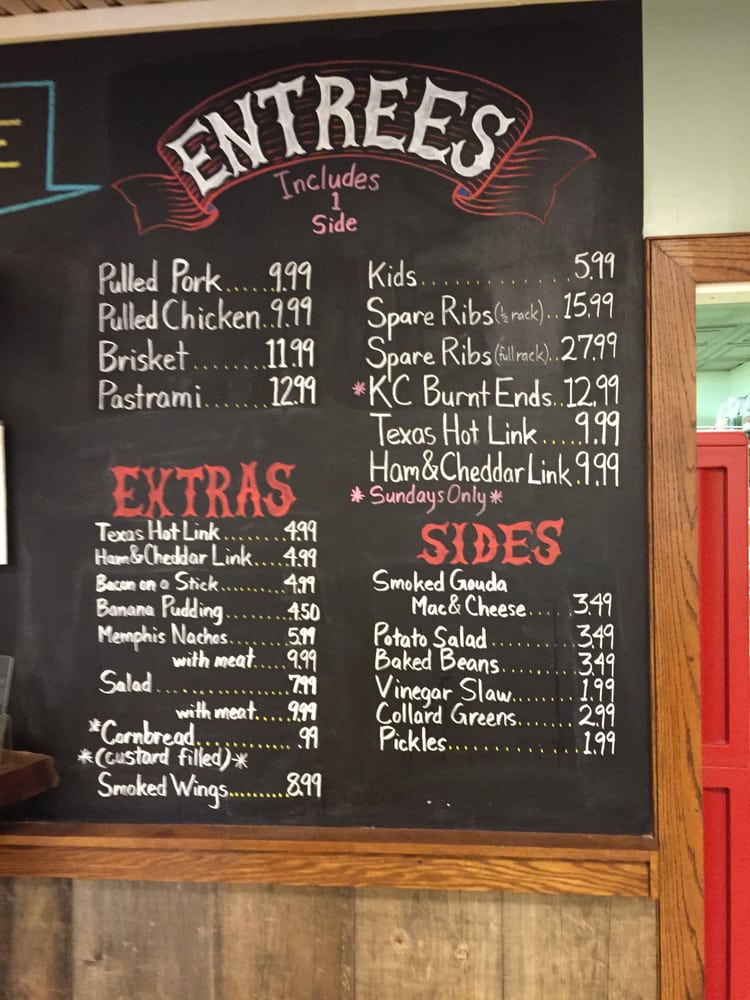 E
ENTREES
Includes
1
Side
Pulled Pork......9.99
Pulled Chicken..9.99
Brisket........11.99
Pastrami.......12.99
Kids.............5.99
Spare Ribs (½ rack)..15.99
Spare Ribs (full rack)..27.99
*KC Burnt Ends..12.99
Texas Hot Link.....9.99
Ham & Cheddar Link.9.99
*Sundays Only*
EXTRAS
Texas Hot Link........4.99
Ham & Cheddar Link....4.99
Bacon on a Stick........4.99
Banana Pudding........4.50
Memphis Nachos.......5.99
with meat.....9.99
Salad.................7.99
with meat.....9.99
*Cornbread............99
*(custard filled)*
Smoked Wings.........8.99
SIDES
Smoked Gouda
Mac & Cheese.....3.49
Potato Salad.........3.49
Baked Beans........3.49
Vinegar Slaw.......1.99
Collard Greens......2.99
Pickles.............1.99